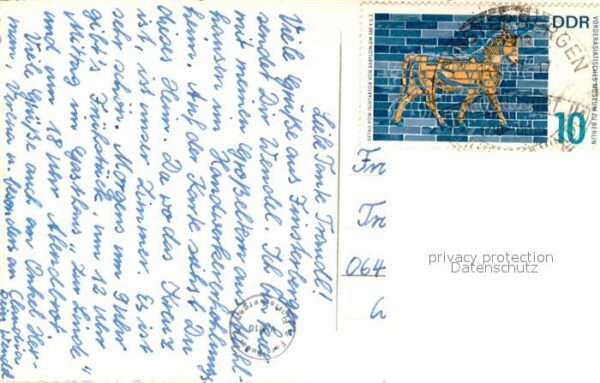 Liebe Tante Traudl!
Viele Grüße aus Finsterbergen
sendet Dir Wendel. Ich bin hier
Großeltern
hausen im Handwerkererholungs-
heim. Auf der Karte siehst Du
Da wo das Kreuz
ist unser Zimmer. Es ist
sehr schön. Morgens um 9 Uhr
gibt's Frühstück, um 12 Uhr
Mittag im Gasthaus "Zur Linde"
und um 18 Uhr Abendbrot
Viele Grüße auch an Onkel Her-
mann, Verena u. besonders Claudia
Dein Wendel
DDR
10
VORDERASIATISCHES MUSEUM ZU BERLIN
DETAIL VOM ISCHTARTOR VON BABYLON UM 580 V.U.Z.
Fr
Tr
064
privacy protection
Datenschutz